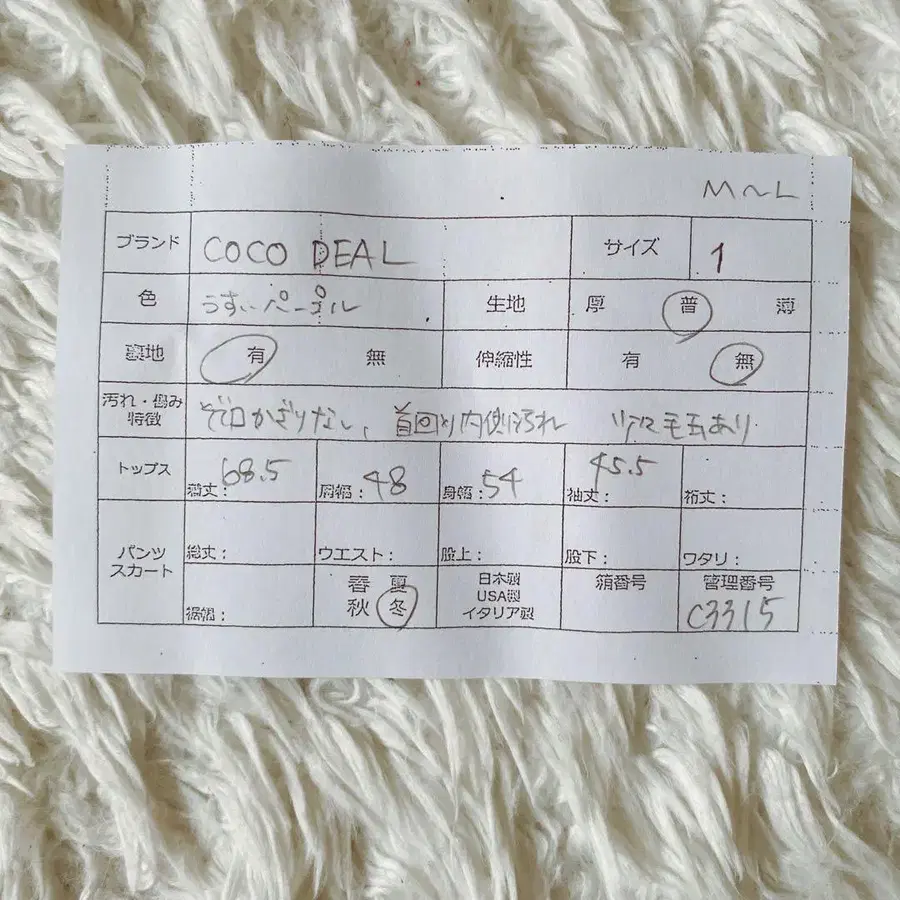 M〜L
ブランド COCO DEAL サイズ 1
色 うすいパープル 生地 厚 普 薄
裏地 有 無 伸縮性 有 無
汚れ・傷み
特徴
首回り内側汚れ 毛玉あり
トップス 着丈: 68.5 肩幅: 48 身幅: 54 袖丈: 45.5 裄丈:
パンツ
スカート
総丈: ウエスト: 股上: 股下: ワタリ:
裾幅: 春 夏 秋 冬
日本製
USA製
イタリア製
箱番号
管理番号
C3315